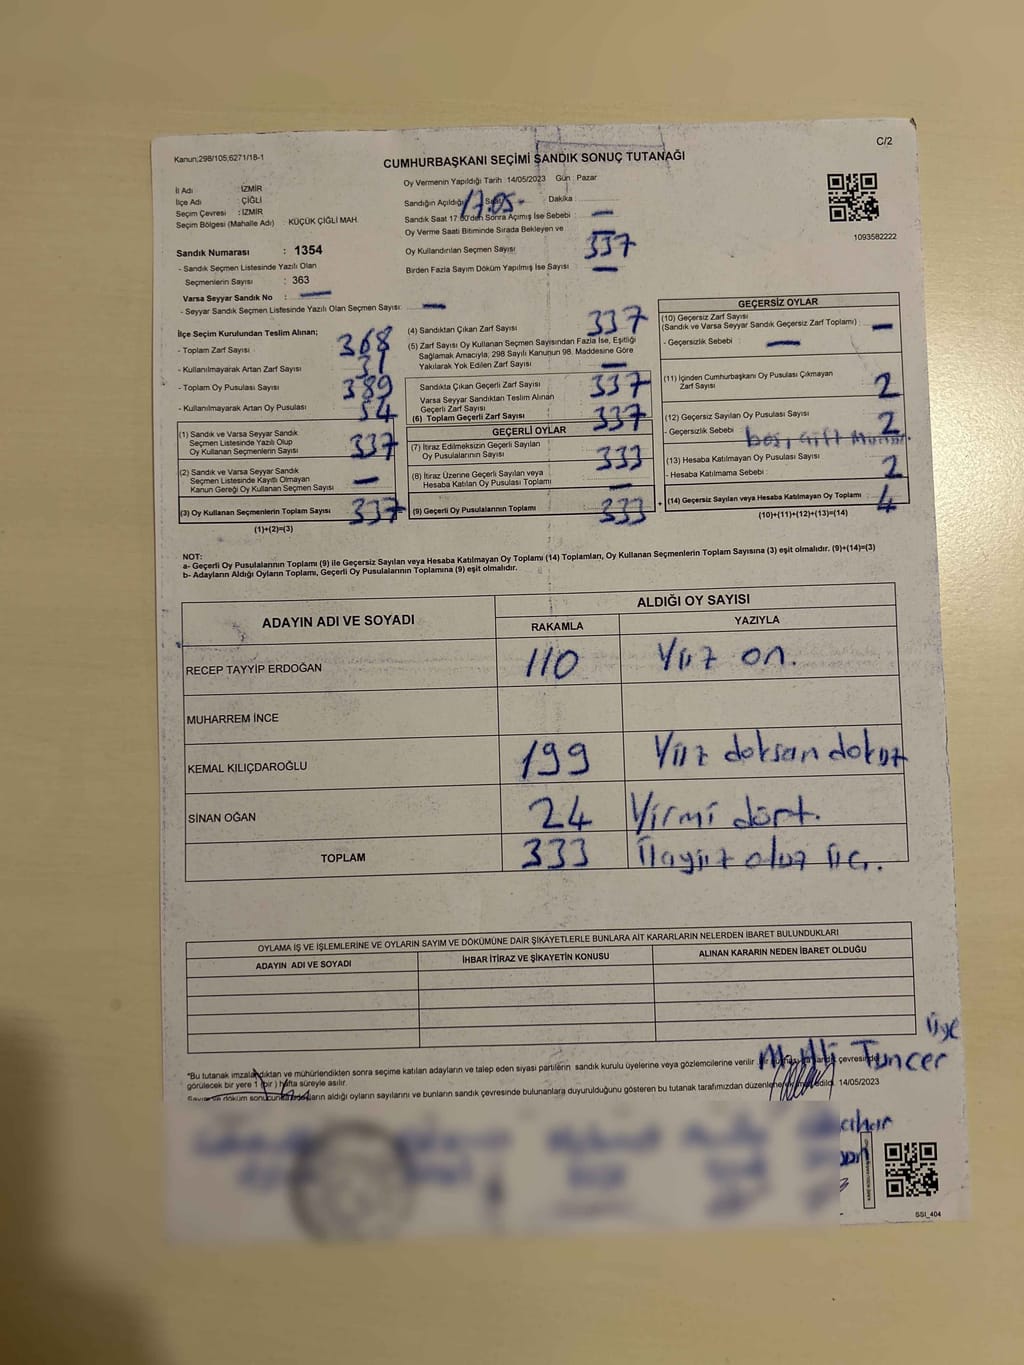 Kanun;298/105;6271/18-1
C/2
CUMHURBAŞKANI SEÇİMİ SANDIK SONUÇ TUTANAĞI
İl Adı : İZMİR
İlçe Adı : ÇİĞLİ
Seçim Çevresi : İZMİR
Seçim Bölgesi (Mahalle Adı) : KÜÇÜK ÇİĞLİ MAH.
Sandık Numarası : 1354
- Sandık Seçmen Listesinde Yazılı Olan
Seçmenlerin Sayısı : 363
Varsa Seyyar Sandık No : —
- Seyyar Sandık Seçmen Listesinde Yazılı Olan Seçmen Sayısı: —
Oy Vermenin Yapıldığı Tarih 14/05/2023 Gün : Pazar
Sandığın Açıldığı Saat 17.05- Dakika :
Sandık Saat 17:00'den Sonra Açımış İse Sebebi : —
Oy Verme Saati Bitiminde Sırada Bekleyen ve
Oy Kullandırılan Seçmen Sayısı : 337
Birden Fazla Sayım Döküm Yapılmış İse Sayısı : —
1093582222
İlçe Seçim Kurulundan Teslim Alınan;
- Toplam Zarf Sayısı : 368
- Kullanılmayarak Artan Zarf Sayısı : 31
- Toplam Oy Pusulası Sayısı : 389
- Kullanılmayarak Artan Oy Pusulası : 54
(1) Sandık ve Varsa Seyyar Sandık
Seçmen Listesinde Yazılı Olup
Oy Kullanan Seçmenlerin Sayısı : 337
(2) Sandık ve Varsa Seyyar Sandık
Seçmen Listesinde Kayıtlı Olmayan
Kanun Gereği Oy Kullanan Seçmen Sayısı —
(3) Oy Kullanan Seçmenlerin Toplam Sayısı 337
(1)+(2)=(3)
(4) Sandıktan Çıkan Zarf Sayısı : 337
(5) Zarf Sayısı Oy Kullanan Seçmen Sayısından Fazla İse, Eşitliği
Sağlamak Amacıyla; 298 Sayılı Kanunun 98. Maddesine Göre
Yakılarak Yok Edilen Zarf Sayısı : —
Sandıkta Çıkan Geçerli Zarf Sayısı : 337
Varsa Seyyar Sandıktan Teslim Alınan
Geçerli Zarf Sayısı
(6) Toplam Geçerli Zarf Sayısı 337
GEÇERLİ OYLAR
(7) İtiraz Edilmeksizin Geçerli Sayılan
Oy Pusulalarının Sayısı 333
(8) İtiraz Üzerine Geçerli Sayılan veya
Hesaba Katılan Oy Pusulası Toplamı —
(9) Geçerli Oy Pusulalarının Toplamı 333
GEÇERSİZ OYLAR
(10) Geçersiz Zarf Sayısı
(Sandık ve Varsa Seyyar Sandık Geçersiz Zarf Toplamı) —
- Geçersizlik Sebebi : —
(11) İçinden Cumhurbaşkanı Oy Pusulası Çıkmayan
Zarf Sayısı 2
(12) Geçersiz Sayılan Oy Pusulası Sayısı 2
- Geçersizlik Sebebi boş, çift
(13) Hesaba Katılmayan Oy Pusulası Sayısı 2
- Hesaba Katılmama Sebebi :
(14) Geçersiz Sayılan veya Hesaba Katılmayan Oy Toplamı 4
(10)+(11)+(12)+(13)=(14)
NOT:
a- Geçerli Oy Pusulalarının Toplamı (9) ile Geçersiz Sayılan veya Hesaba Katılmayan Oy Toplamı (14) Toplamları, Oy Kullanan Seçmenlerin Toplam Sayısına (3) eşit olmalıdır. (9)+(14)=(3)
b- Adayların Aldığı Oyların Toplamı, Geçerli Oy Pusulalarının Toplamına (9) eşit olmalıdır.
ADAYIN ADI VE SOYADI
ALDIĞI OY SAYISI
RAKAMLA YAZIYLA
RECEP TAYYİP ERDOĞAN 110 Yüz on.
MUHARREM İNCE
KEMAL KILIÇDAROĞLU 199 Yüz doksan dokuz
SİNAN OĞAN 24 Yirmi dört.
TOPLAM 333 Üçyüz otuz üç.
OYLAMA İŞ VE İŞLEMLERİNE VE OYLARIN SAYIM VE DÖKÜMÜNE DAİR ŞİKAYETLERLE BUNLARA AİT KARARLARIN NELERDEN İBARET BULUNDUKLARI
ADAYIN ADI VE SOYADI İHBAR İTİRAZ VE ŞİKAYETİN KONUSU ALINAN KARARIN NEDEN İBARET OLDUĞU
Üye
Tuncer
*Bu tutanak imzalandıktan ve mühürlendikten sonra seçime katılan adayların ve talep eden siyasi partilerin sandık kurulu üyelerine veya gözlemcilerine verilir çevresinde
görülecek bir yere 1 (bir) hafta süreyle asılır.
aldığı oyların sayılarını ve bunların sandık çevresinde bulunanlara duyurulduğunu gösteren bu tutanak tarafımızdan 14/05/2023
SSI_404